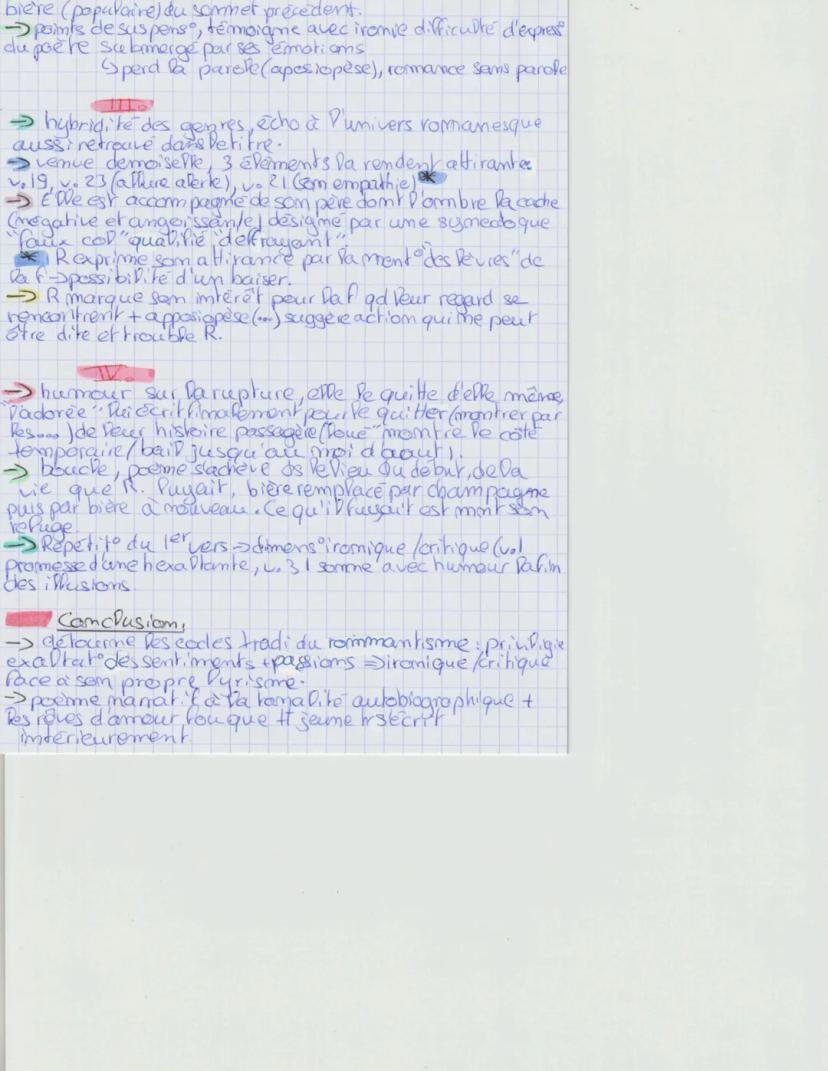 bière (populaire) du sonnet précédent.
→ points de suspens°, témoigne avec ironie difficulté d'express°
du poète submergé par ses émotions
↳ perd la parole (aposiopèse), romance sans parole
III.
→ hybridité des genres, écho à l'univers romanesque
aussi retrouvé dans le titre.
→ venue demoiselle, 3 éléments la rendent attirante
v.19, v. 23 (allure alerte), v. 21 (son empathie) *
→ Elle est accompagné de son père dont l'ombre la cache
(négative et angoissan/e) désigné par une synecdoque
"faux col" qualifié "d'effrayant".
* R exprime son attirance par la ment° des lèvres" de
la f → possibilité d'un baiser.
→ R marque son intérêt pour la f qd leur regard se
rencontrent + apposiopèse (...) suggère action qui ne peut
être dite et trouble R.
IV.
→ humour sur la rupture, elle le quitte d'elle même,
"l'adorée" lui écrit finalement pour le quitter (montrer par
les....) de leur histoire passagère ("loué" montre le côté
temporaire / bail jusqu'au moi d'aout).
→ boucle, poème s'achève ds le lieu du début, de la
vie que R. fuyait, bière remplacé par champagne
puis par bière à nouveau. Ce qu'il fuyait est mnt son
refuge.
→ Répétit° du 1er vers → dimens° ironique / critique (v.1
promesse d'une hexaltante, v. 31 sonne avec humour la fin
des illusions.
Conclusion,
→ détourne les codes tradi du rommantisme : priviligie
exaltat° des sentiments + passions ⇒ ironique / critique
face à son propre lyrisme.
→ poème narratif à la tonalité autobiographique +
les rêves d'amour fou que tt jeune h s'écrit
intérieurement